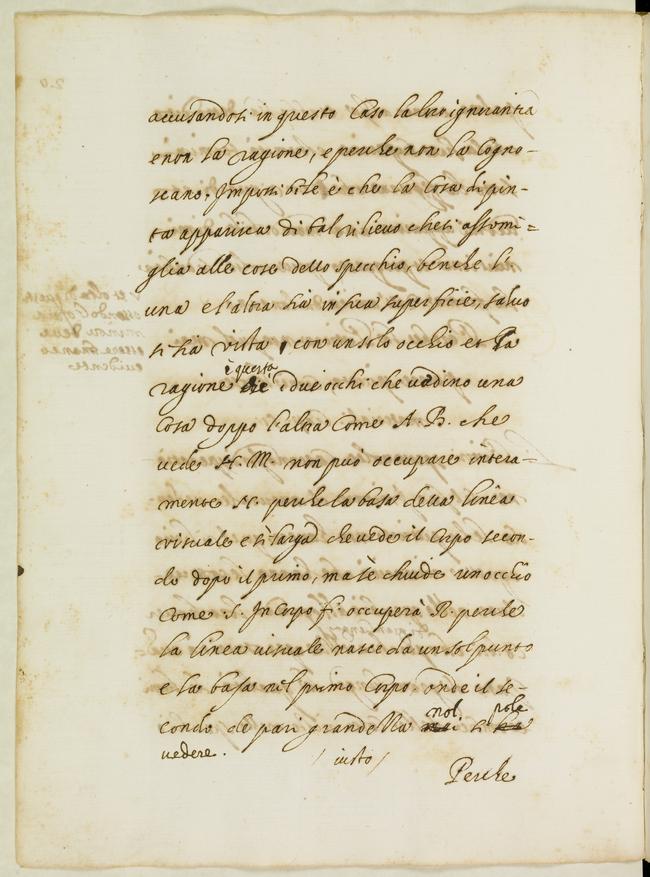 accusandosi in questo Caso la loro ignorantia
e non la ragione, e perche non la Cogno-
scano. Impossibile è che la Cosa dipin-
ta apparisca di tal rilievo che si assomi=
glia alle cose dello specchio, benche l'
una e l'altra sia in sua superficie, salvo
si sia vista, con un solo occhio et la
è questa
ragione i due occhi che vedino una
Cosa doppo l'altra Come A. B. che
vede N. M. non può occupare intera-
mente N. perche la basa della linea
visuale e si larga che vede il Corpo secon-
do dopo il primo, ma se chiude un occhio
Come S. In Corpo f. occuperà R. perche
la linea visuale nasce da un sol punto
e la basa nel primo Corpo. onde il se-
nol pole
condo de pari grandezza si
vedere. / iusto /
Perche